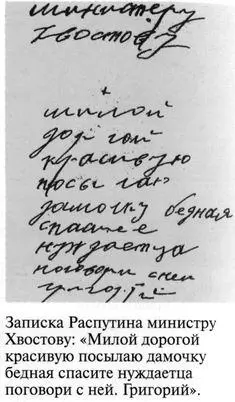 министеру
Хвостову
+
милой
дорогой
красивую
посылаю
дамочку бедная
спасите
нуждаетца
поговори с ней
григорий
Записка Распутина министру
Хвостову: «Милой дорогой
красивую посылаю дамочку
бедная спасите нуждаетца
поговори с ней. Григорий».